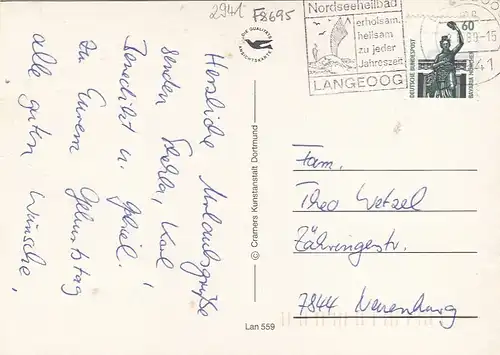 2941 F8695
Nordseeheilbad
erholsam,
heilsam
zu jeder
Jahreszeit
LANGEOOG
89-15
41
60
DEUTSCHE BUNDESPOST
BAVARIA MÜNCHEN
DIE QUALITÄTS
ANSICHTSKARTE
Herzliche Urlaubsgrüße
senden Karl
Benedikt u.
Zu Eurem Geburtstag
alle guten Wünsche,
© Cramers Kunstanstalt Dortmund
Fam.
Theo Wetzel
Zähringerstr.
7844 Neuenburg
Lan 559